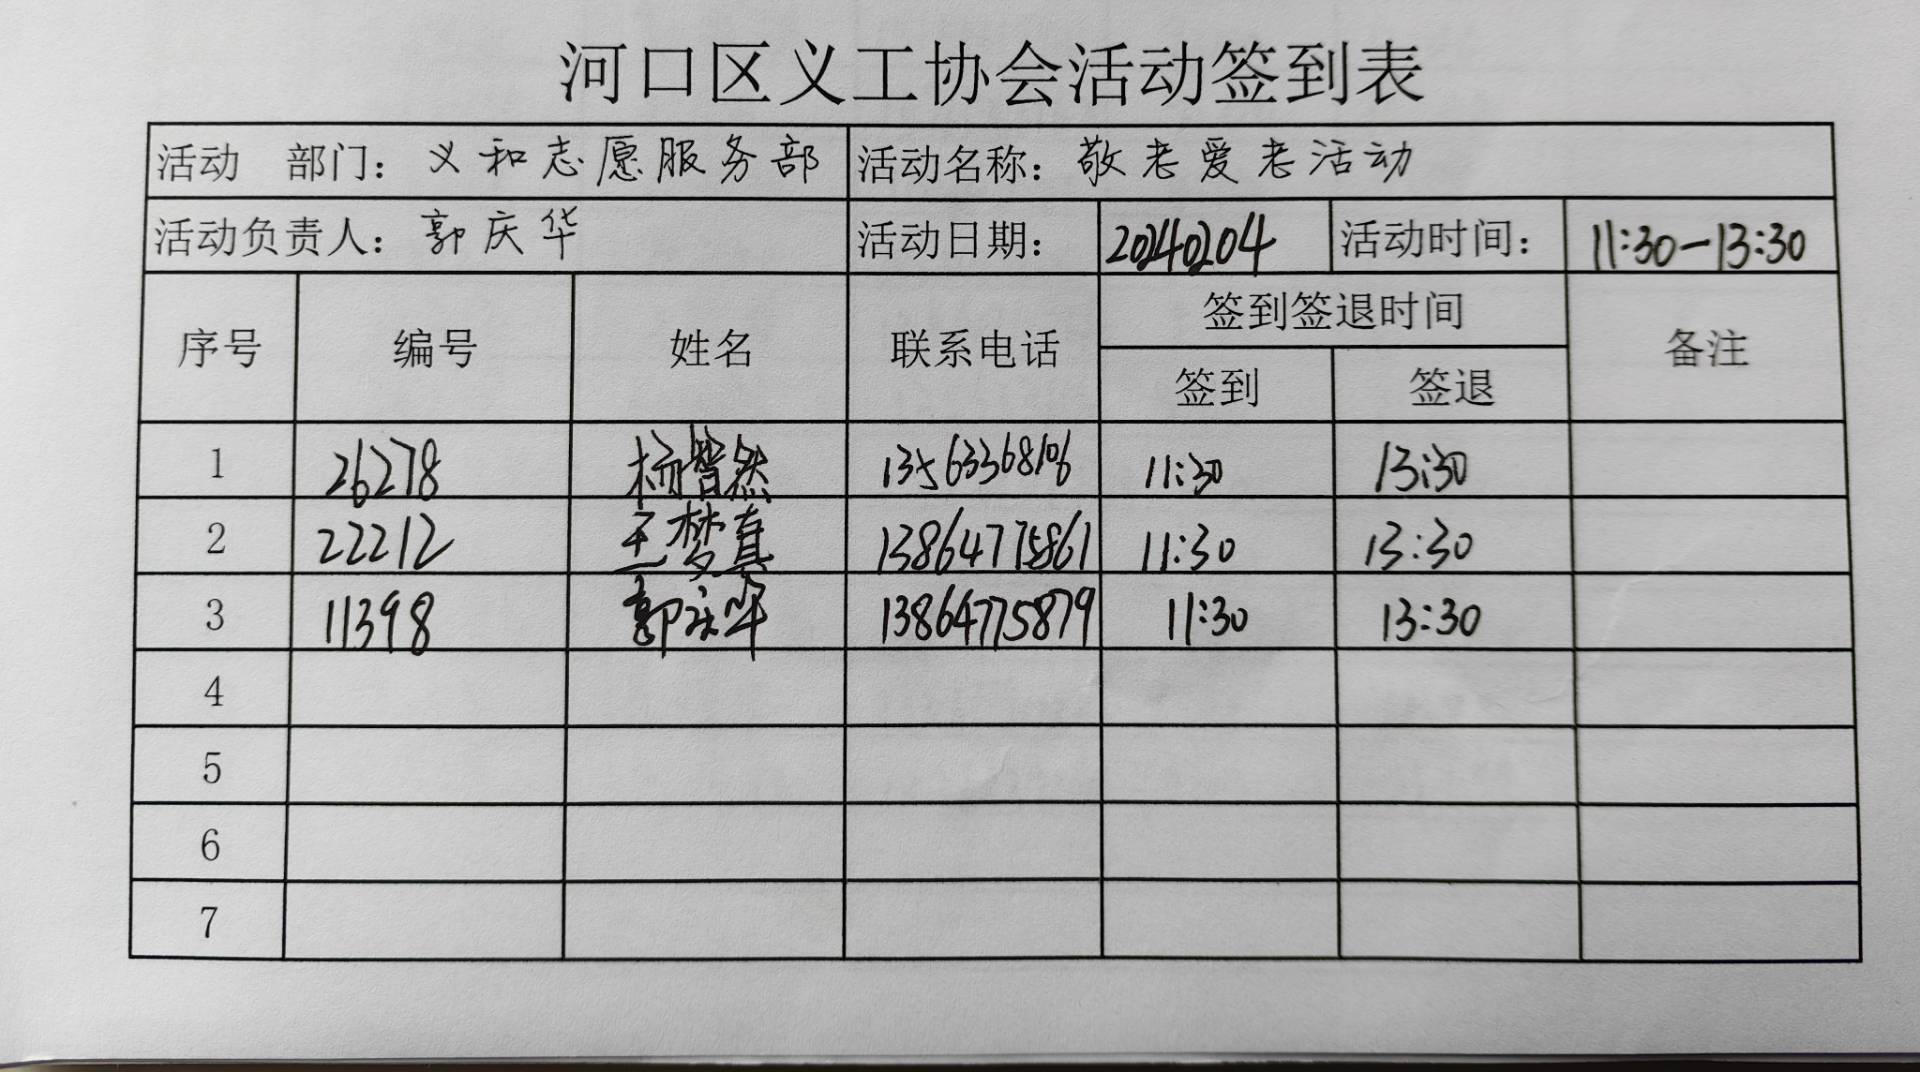 河口区义工协会活动签到表
活动 部门：义和志愿服务部 活动名称：敬老爱老活动
活动负责人：郭庆华 活动日期： 20240204 活动时间： 11:30－13:30
序号 编号 姓名 联系电话 签到签退时间 备注
签到 签退
1 26278 杨智然 13563368106 11:30 13:30
2 22212 王梦真 13864775861 11:30 13:30
3 11398 郭庆华 13864775879 11:30 13:30
4
5
6
7